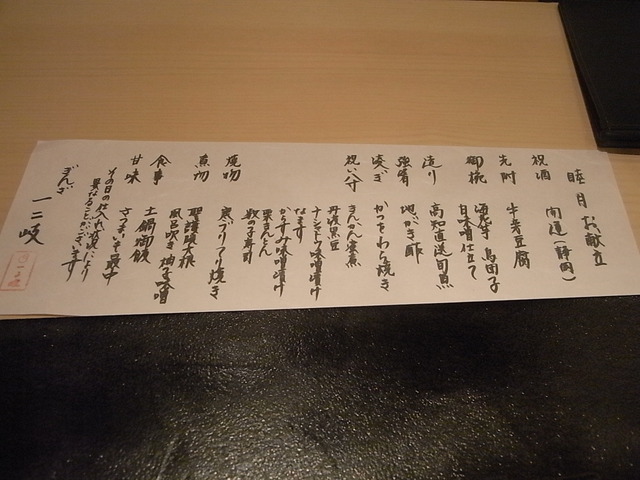 睦月お献立
祝酒 開運（静岡）
先附 牛蒡豆腐
御椀 海老芋 鳥団子
白味噌仕立て
造り 高知直送旬魚
強肴 地がき酢
凌ぎ かつをわら焼き
祝い八寸 きんかん蜜煮
丹波黒豆
味噌漬け
なます
からすみ味噌漬け
栗きんとん
数の子寿司
焼物 寒ブリつけ焼き
煮物 聖護院大根
風呂吹き 柚子味噌
食事 土鍋御飯
甘味 さつまいも最中
その日の仕入れ状況により
異なることがございます
ぎんざ
一二岐